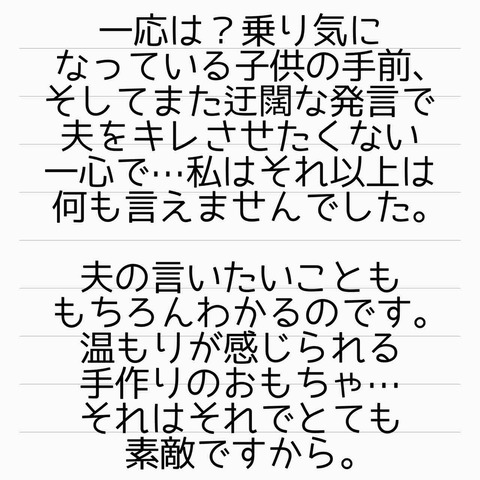 一応は？乗り気に
なっている子供の手前、
そしてまた迂闊な発言で
夫をキレさせたくない
一心で…私はそれ以上は
何も言えませんでした。
夫の言いたいことも
もちろんわかるのです。
温もりが感じられる
手作りのおもちゃ…
それはそれでとても
素敵ですから。